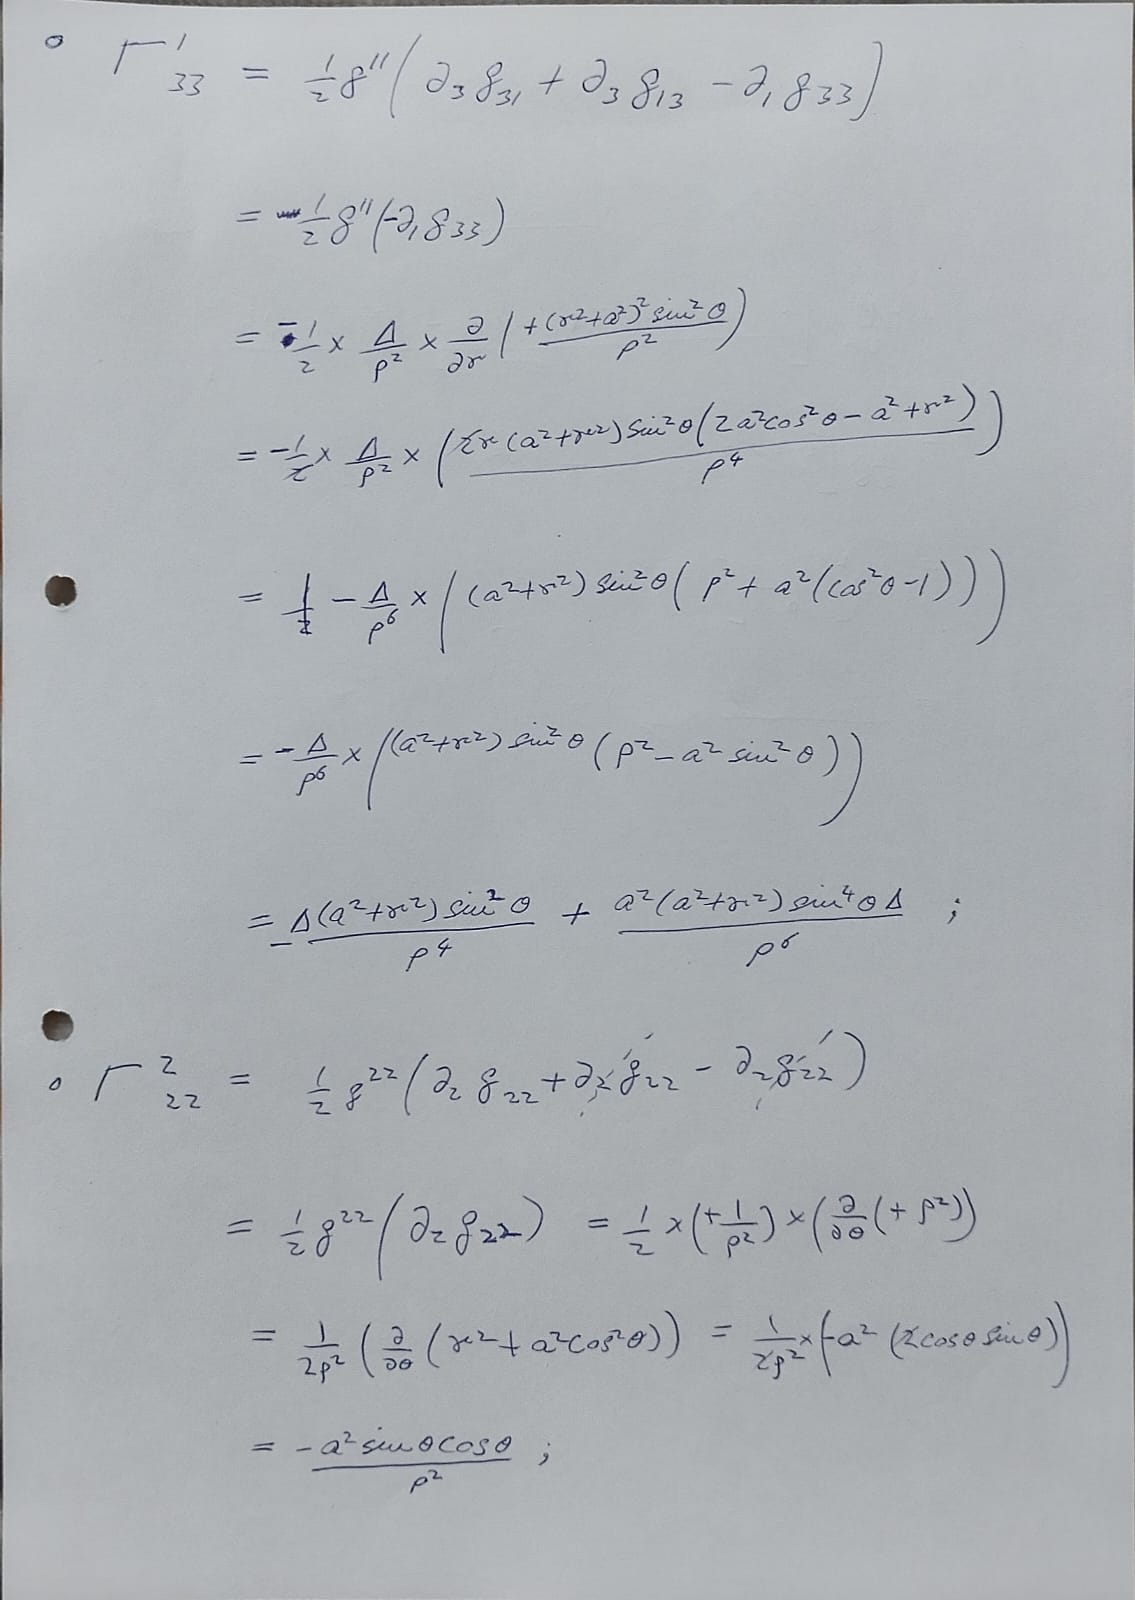 ∘ Γ¹₃₃ = 1/2 g¹¹ (∂₃g₃₁ + ∂₃g₁₃ − ∂₁g₃₃)
= 1/2 g¹¹ (−∂₁g₃₃)
= −1/2 × Δ/ρ² × ∂/∂r (+(r²+a²)² sin²θ / ρ²)
= −1/2 × Δ/ρ² × (2r (a²+r²) sin²θ (2a²cos²θ − a² + r²) / ρ⁴)
= − Δ/ρ⁶ × ((a²+r²) sin²θ (ρ² + a²(cos²θ−1)))
= − Δ/ρ⁶ × ((a²+r²) sin²θ (ρ² − a² sin²θ))
= − Δ(a²+r²) sin²θ / ρ⁴ + a²(a²+r²) sin⁴θ Δ / ρ⁶ ;
∘ Γ²₂₂ = 1/2 g²² (∂₂g₂₂ + ∂₂g₂₂ − ∂₂g₂₂)
= 1/2 g²² (∂₂g₂₂) = 1/2 × (+1/ρ²) × (∂/∂θ (+ρ²))
= 1/2ρ² (∂/∂θ (r² + a²cos²θ)) = 1/2ρ² × (−a² (2cosθ sinθ))
= −a² sinθ cosθ / ρ² ;